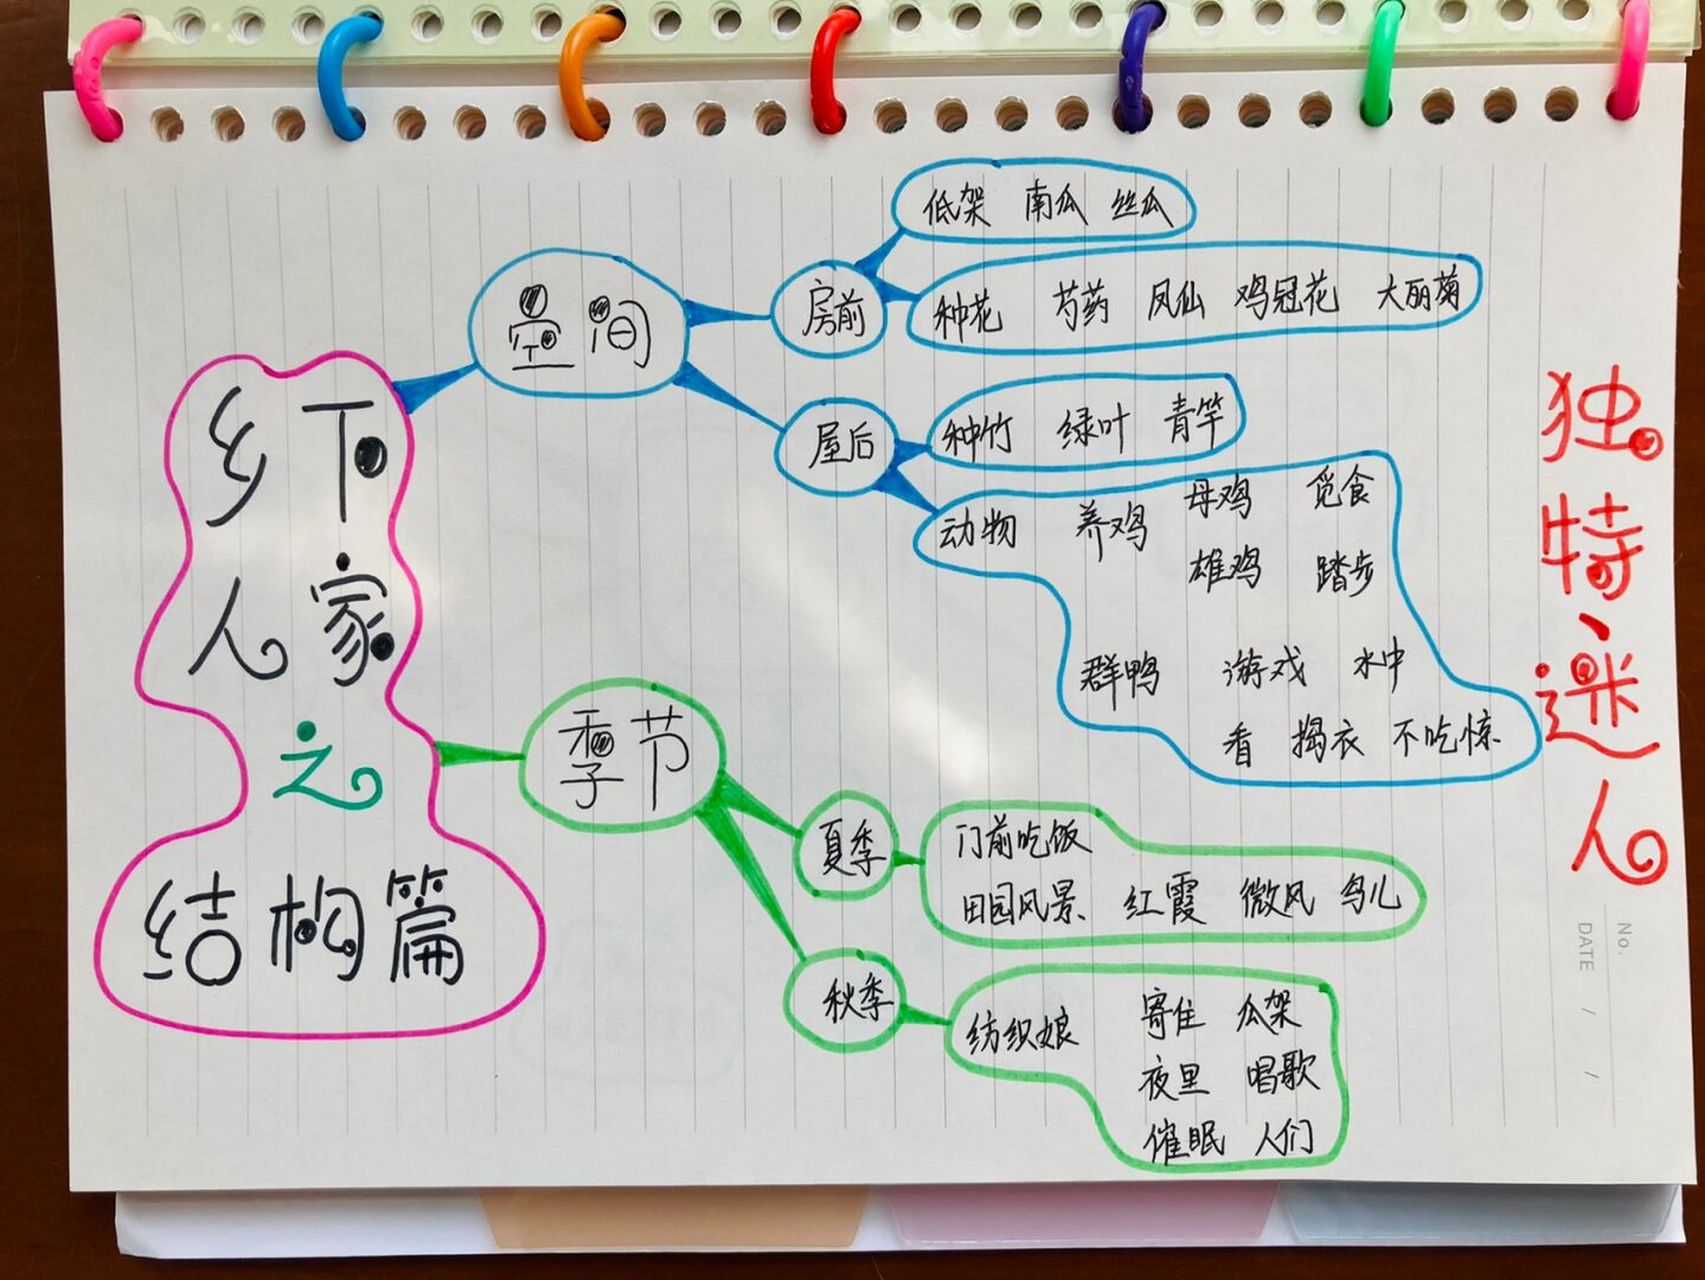 乡下
人家
之
结构篇
空间
房前
低架 南瓜 丝瓜
种花 芍药 凤仙 鸡冠花 大丽菊
屋后
种竹 绿叶 青竿
动物 养鸡 母鸡 觅食
雄鸡 踏步
群鸭 游戏 水中
看 捣衣 不吃惊
季节
夏季
门前吃饭
田园风景 红霞 微风 鸟儿
秋季
纺织娘 寄住 瓜架
夜里 唱歌
催眠 人们
独特、迷人
No.
DATE / /